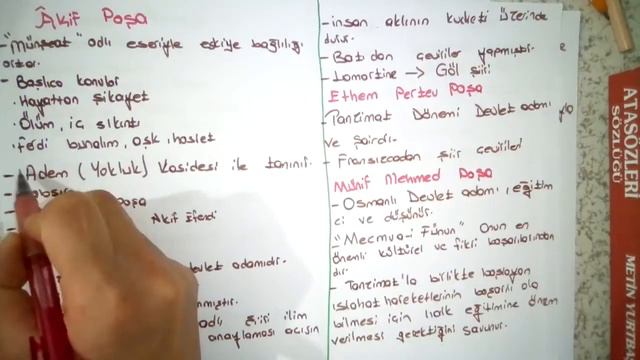 Âkif Paşa
- "Münşeat" adlı eseriyle eskiye bağlılığı
artar.
- Başlıca konular
• Hayattan şikayet
• Ölüm, iç sıkıntı
• ferdi bunalım, aşk, haslet
- Adem (Yokluk) Kasidesi ile tanınır.
paşa
Akif Efendi
devlet adamıdır.
nmıştır.
adlı şiiri ilim
anaylaması açısın
- insan aklının kudreti üzerinde
durur.
- Batıdan çeviriler yapmıştır.
- Lamartine → Göl şiiri
Ethem Pertev Paşa
- Tanzimat Dönemi Devlet adamı
ve şairdir.
- Fransızcadan şiir çevirileri
Münif Mehmed Paşa
- Osmanlı Devlet adamı, eğitim
ci ve düşünür.
- "Mecmua-i Fünun" Onun en
önemli kültürel ve fikri başarılarından
dır.
- Tanzimat'la birlikte başlayan
ıslahat hareketlerinin başarılı ola
bilmesi için halk eğitimine önem
verilmesi gerektiğini savunur.
ATASÖZLERİ
SÖZLÜĞÜ
METİN YURTBA